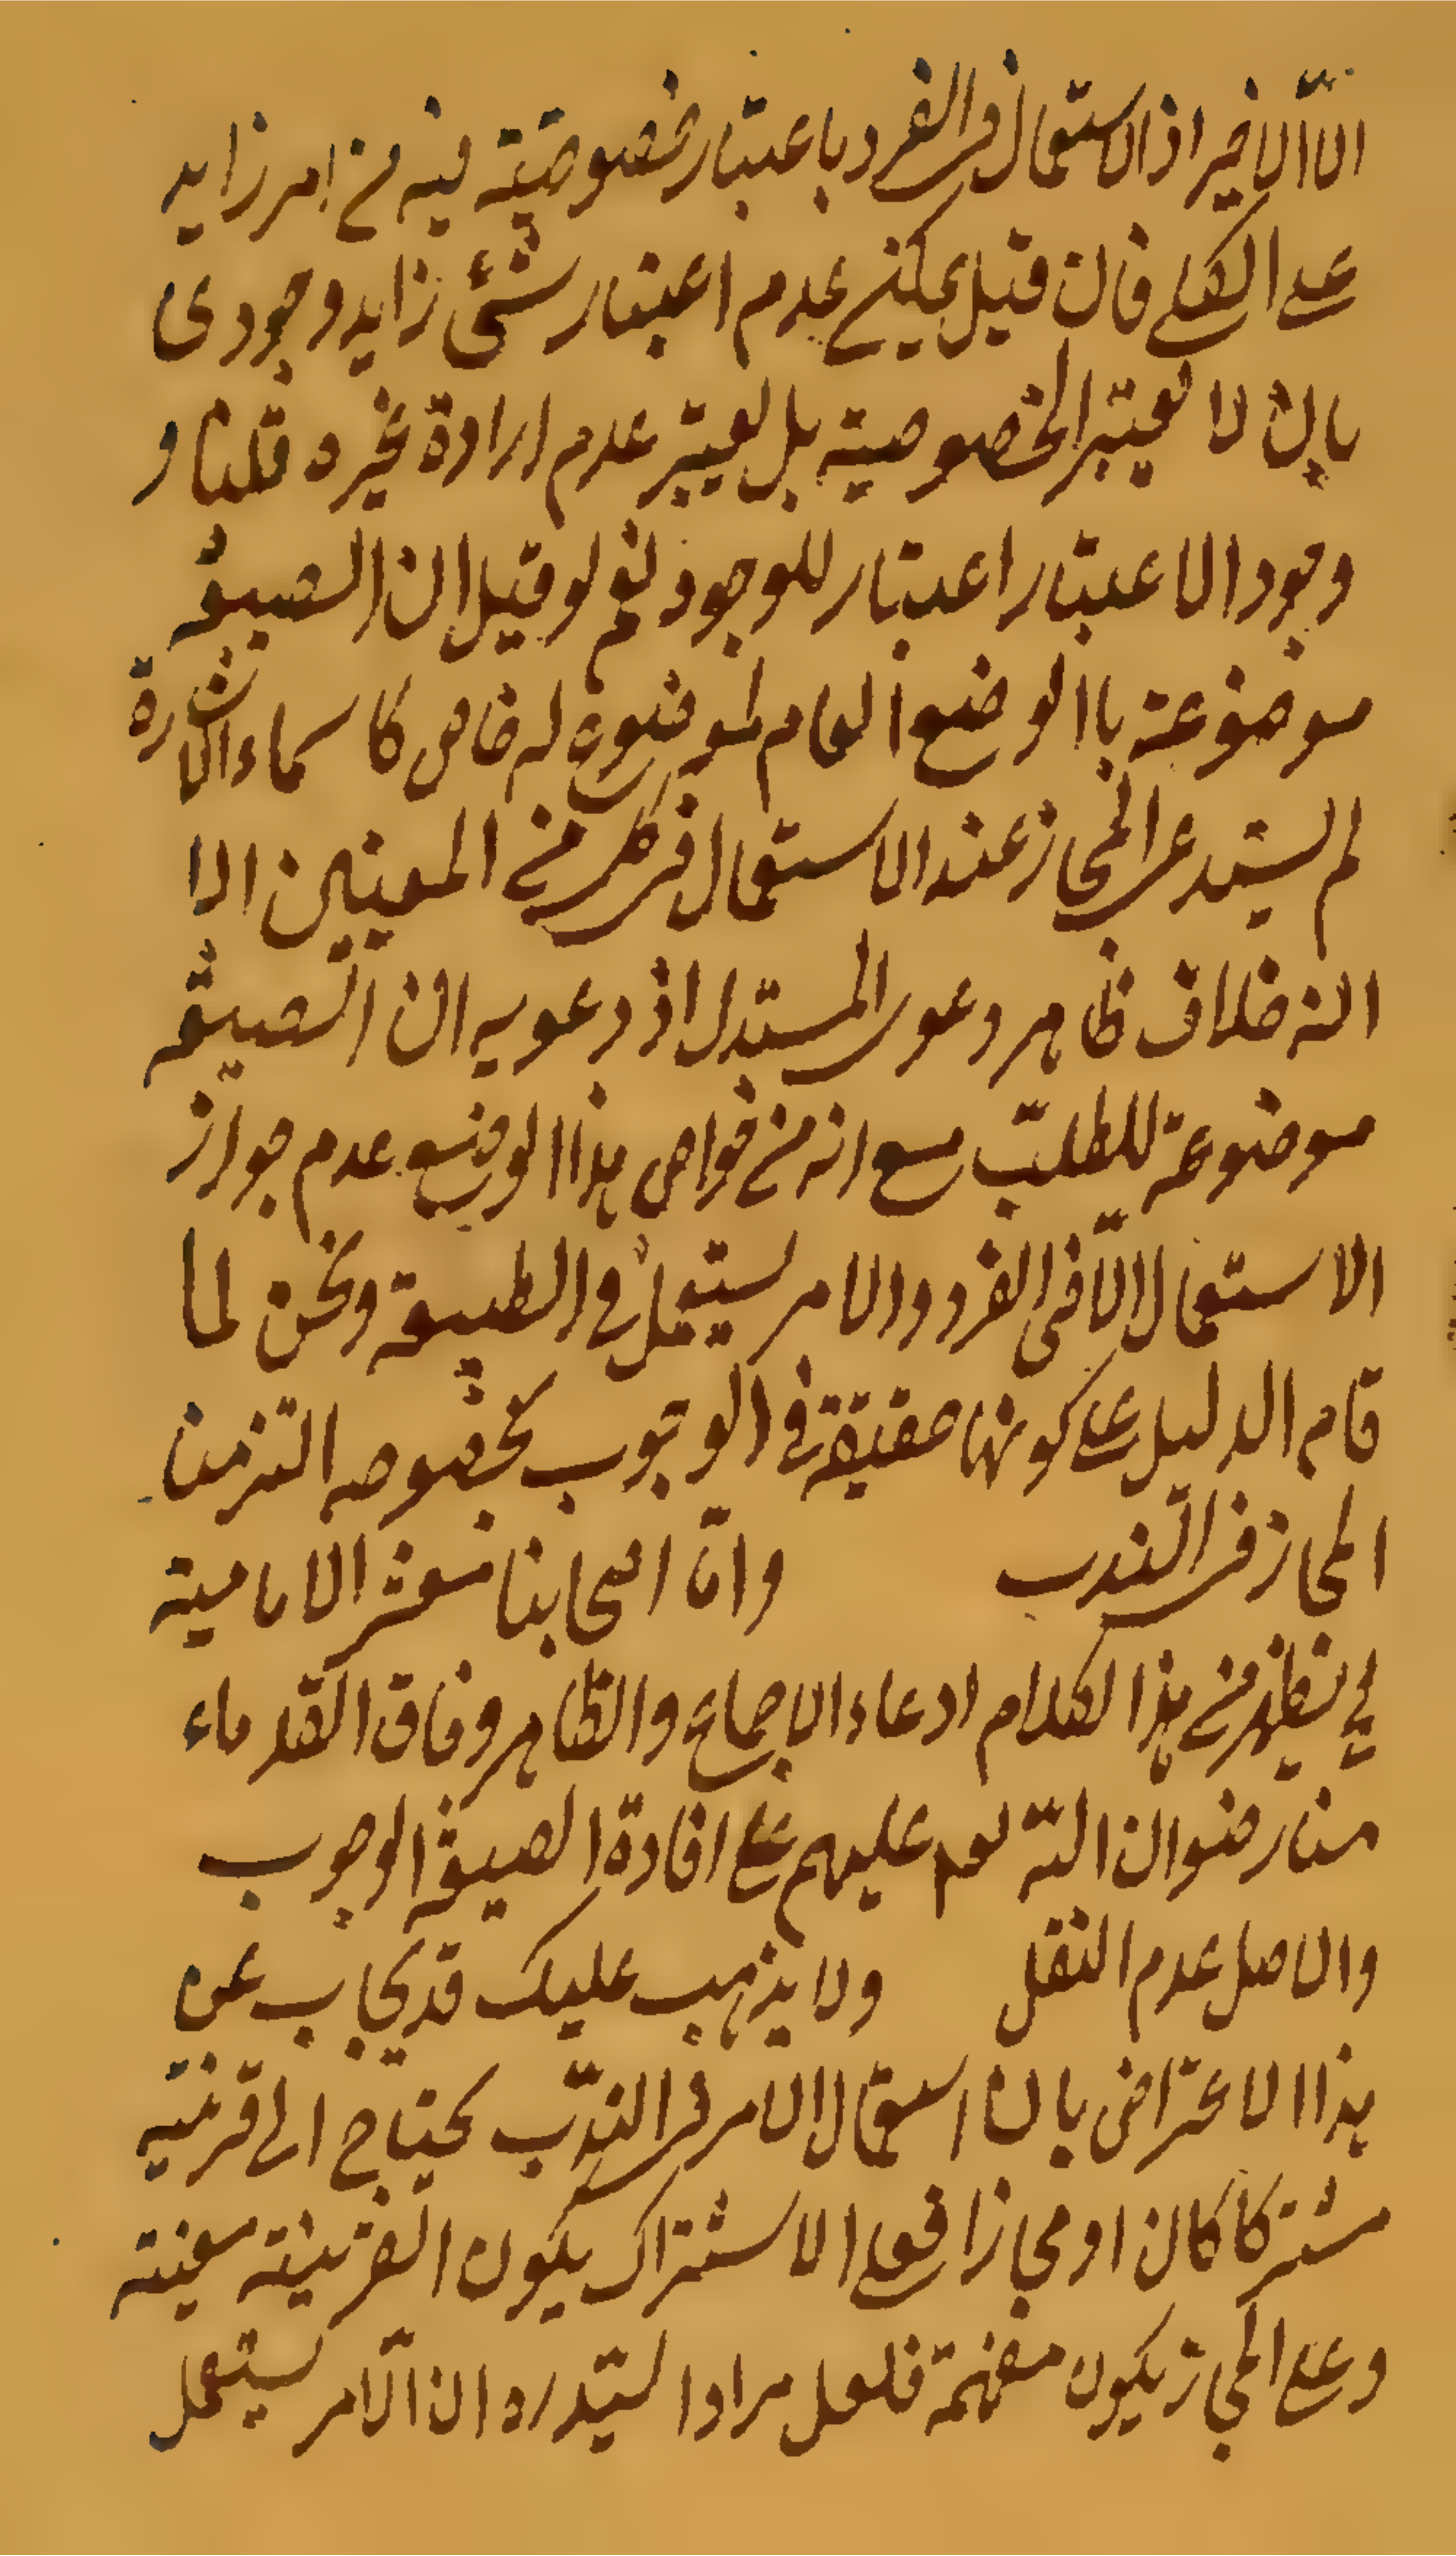 الا الاخير اذ الاستعمال فى الفرد باعتبار خصوصيته فيه من امر زايد
على الكلى فان قيل يمكن عدم اعتبار شئ زايد وجودى
بان لا يعتبر الخصوصية بل يعتبر عدم ارادة غيره قلنا و
وجود الاعتبار اعتبار للوجود نعم لو قيل ان الصيغة
موضوعة باالوضع العام لموضوع له خاص كاسماء الاشارة
لم يستدع المجاز عند الاستعمال فى كل من المعنيين الا
انه خلاف ظاهر دعوى المستدل اذ دعويه ان الصيغة
موضوعة للطلب مع انه من خواص هذا الوضع عدم جواز
الاستعمال الا فى الفرد والامر يستعمل فى الطبيعة ونحن لما
قام الدليل على كونها حقيقة فى الوجوب بخصوصه التزمنا
المجاز فى الندب وان اصحابنا معشر الامامية
لخ يظهر من هذا الكلام ادعاء الاجماع والظاهر وفاق القدماء
منا رضوان الله تعم عليهم على افادة الصيغة الوجوب
والاصل عدم النقل ولا يذهب عليك قد يجاب عن
هذا الاعتراض بان استعمال الامر فى الندب يحتاج الى قرينة
مشتركا كان او مجازا فعلى الاشتراك يكون القرينة معينة
وعلى المجاز يكون مفهمة فلعل مراد السيد ره ان الامر يستعمل